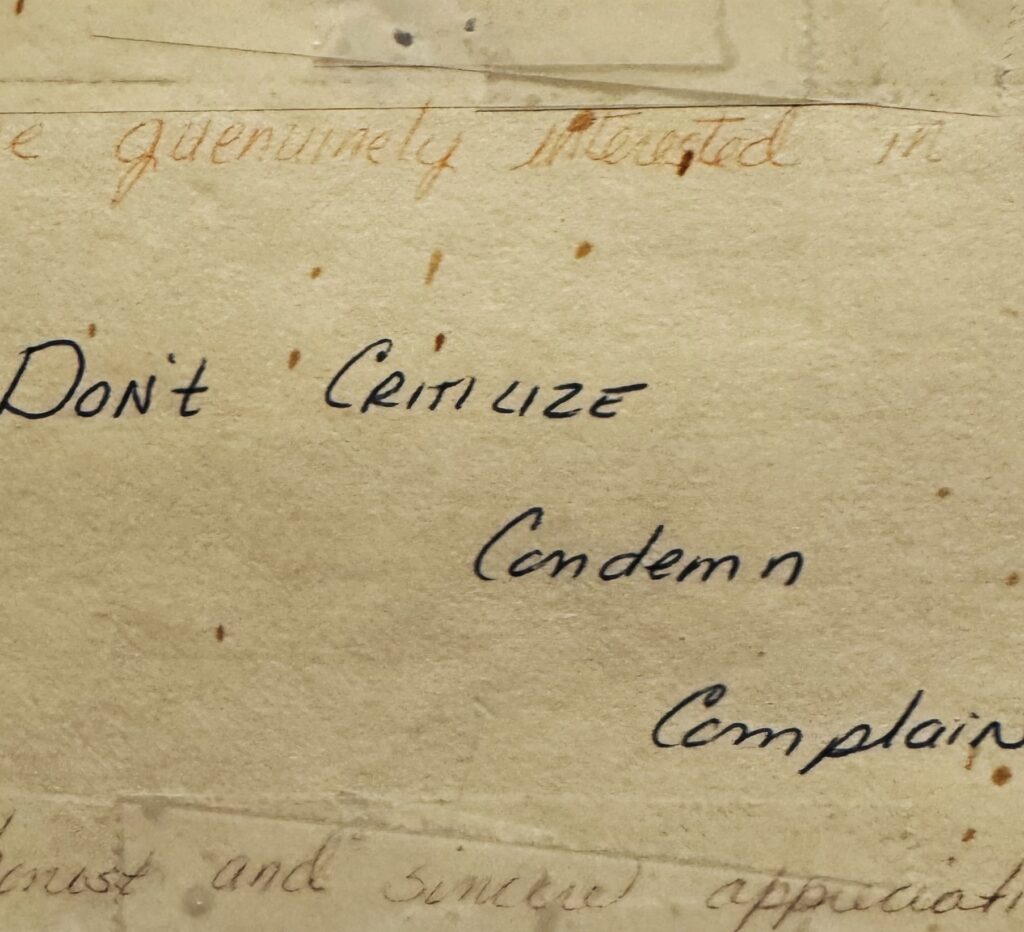 e guenuinely interested in
Don't Criticize
Condemn
Complain
honest and sincere appreciati